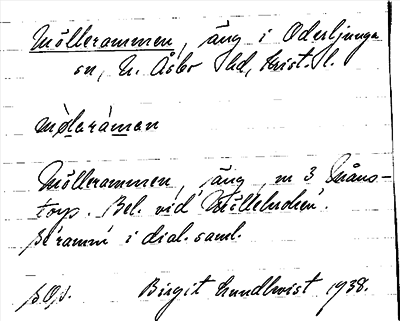 Möllerammen, äng i Oderljunga
sn, N. Åsbo hd, Krist. l.
mølaráman
Möllerammen, äng, m 3 Måns-
torp. Bel. vid "Möllebroken".
Se ramm i dial. saml.
Birgit Lundkvist 1938.